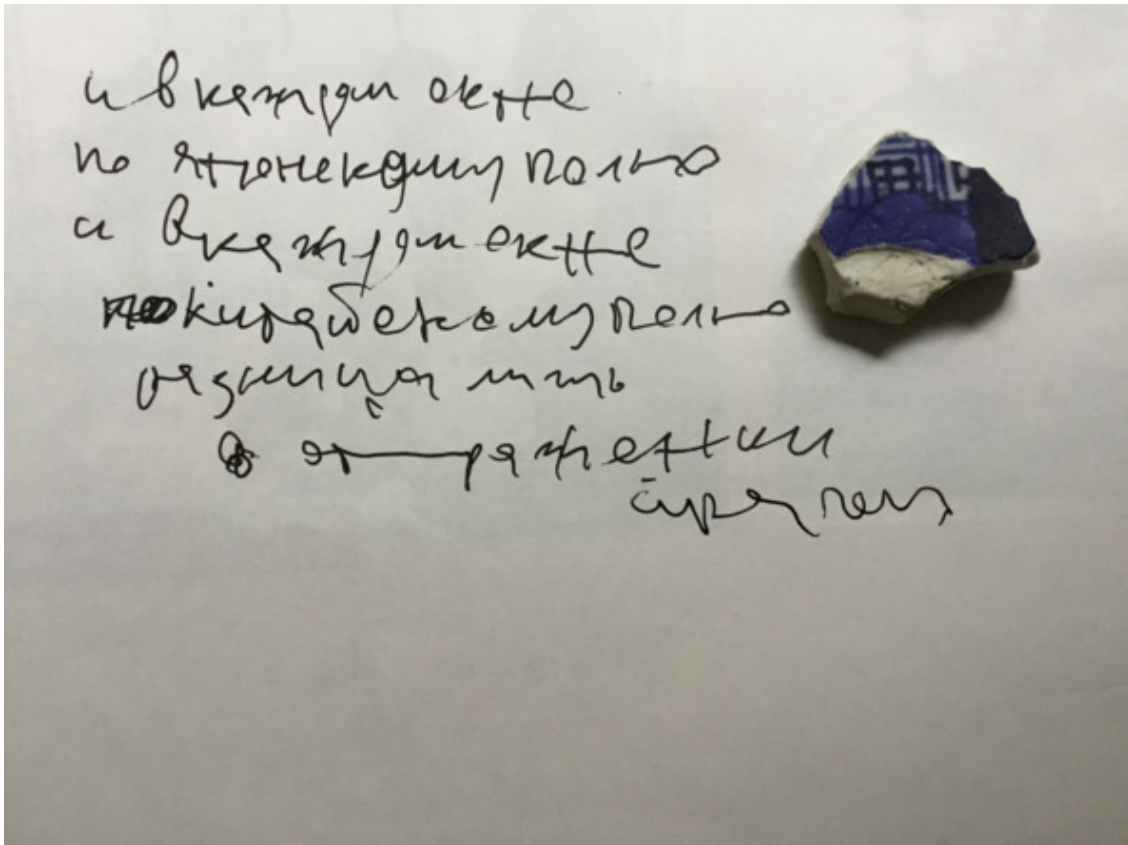 и в каждом окне
по японскому полю
и в каждом окне
по китайскому полю
разница лишь
в отражении